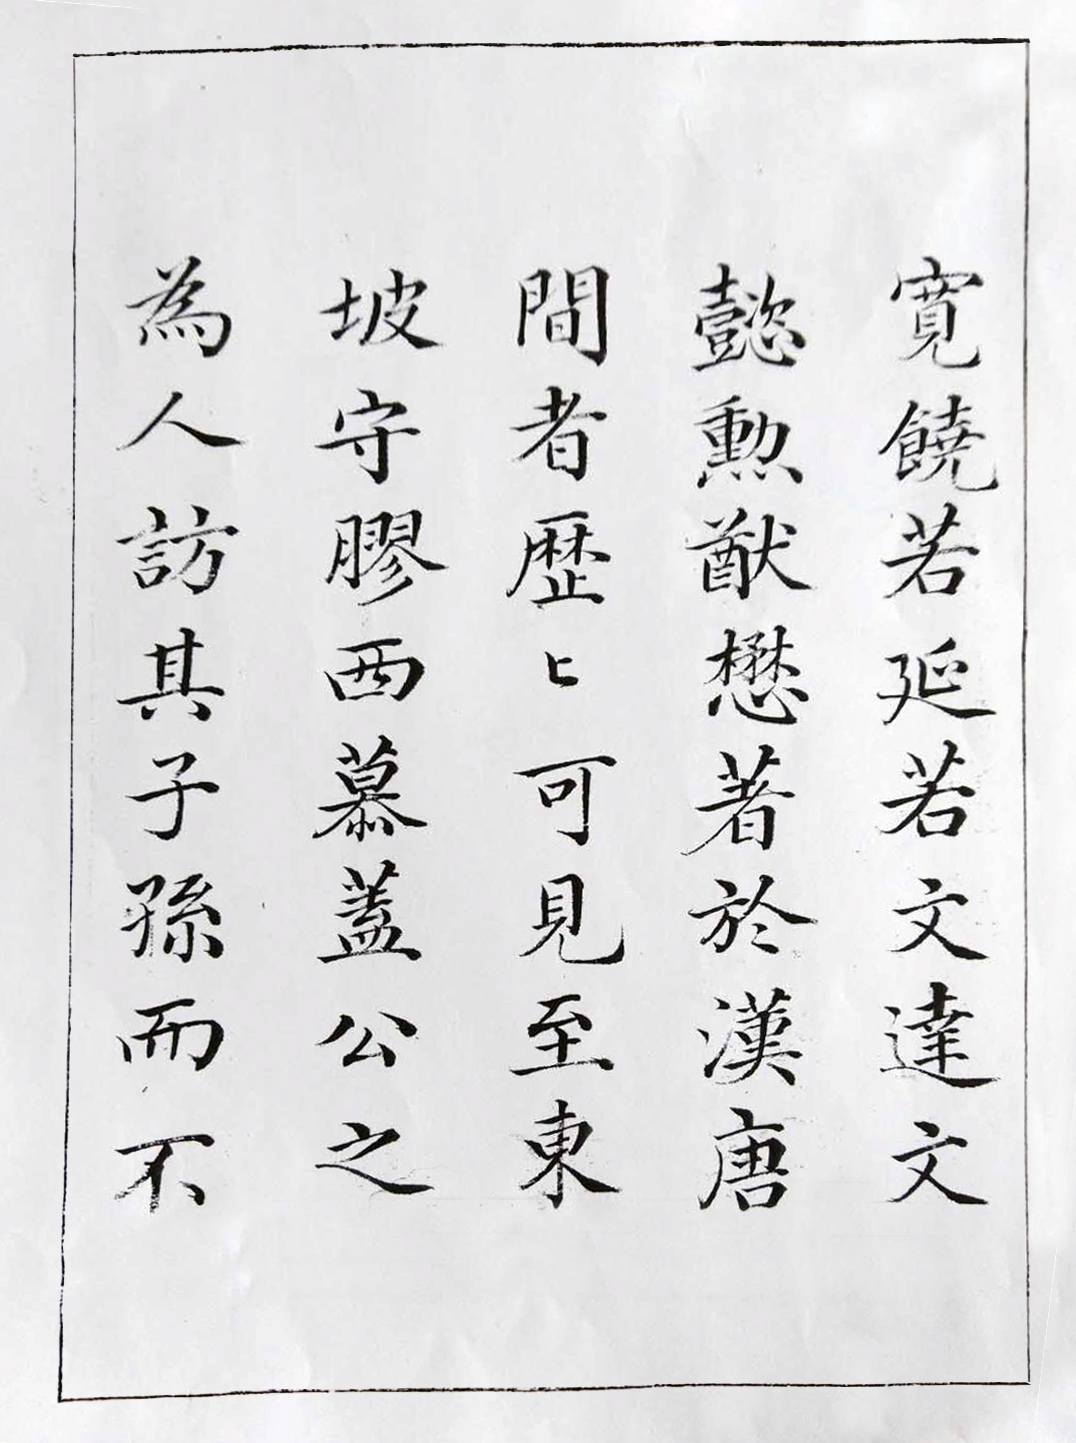 寛饒若延若文達文
懿勲猷懋著於漢唐
間者歴〻可見至東
坡守膠西慕蓋公之
為人訪其子孫而不